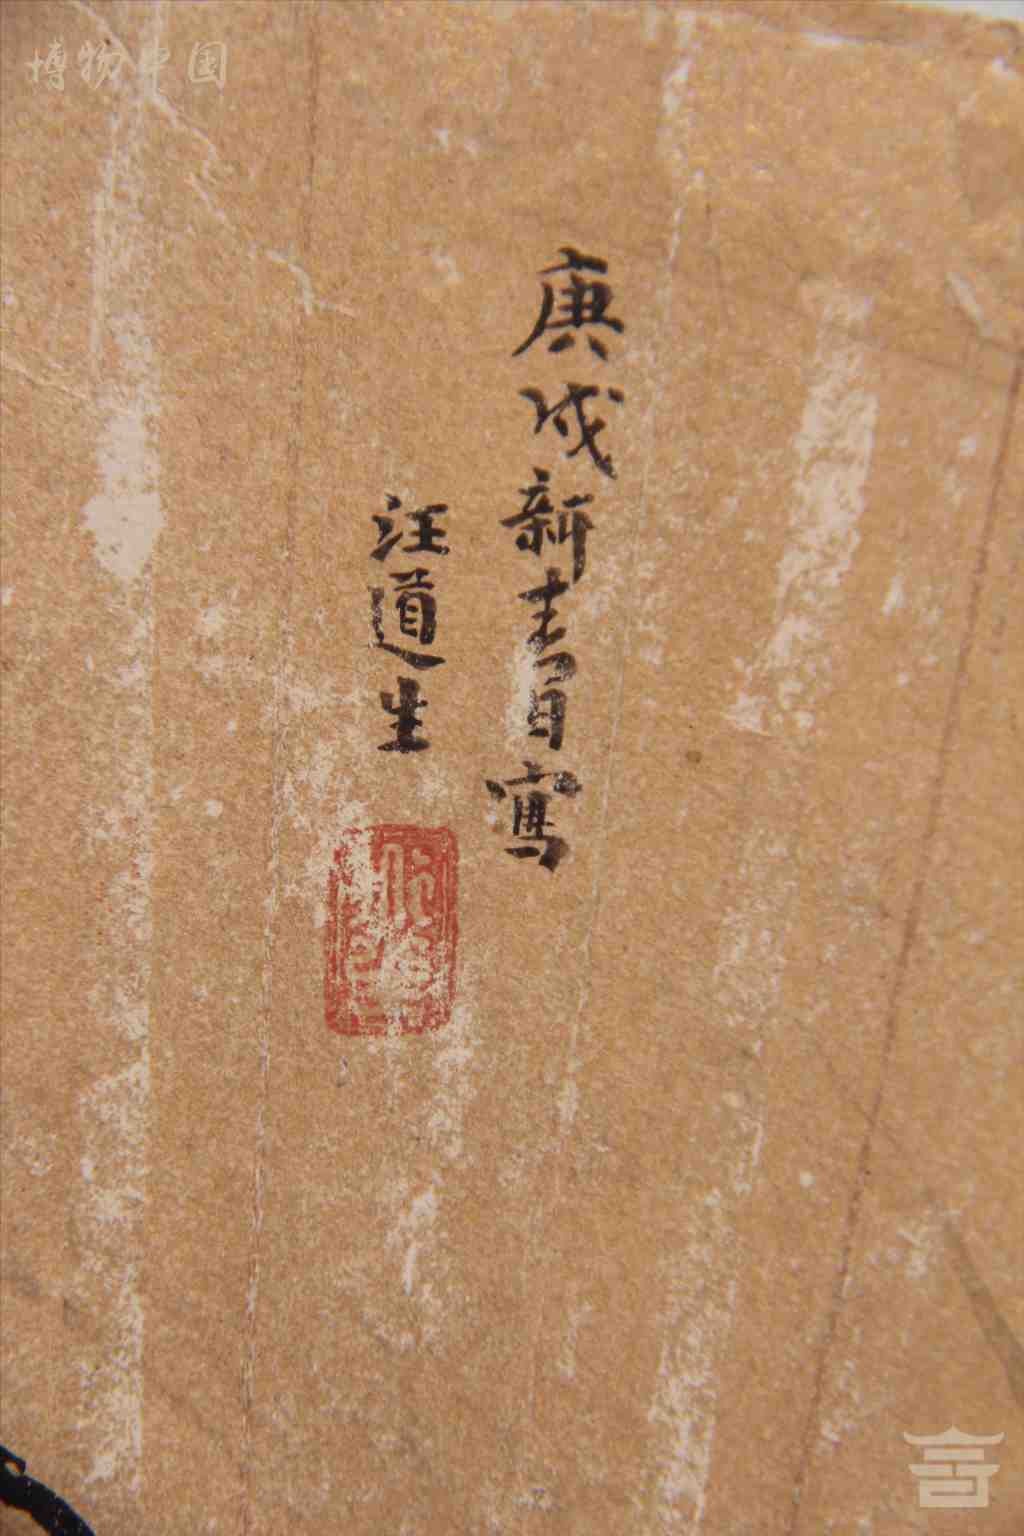 博物中国
庚戌新春日寫
汪道生